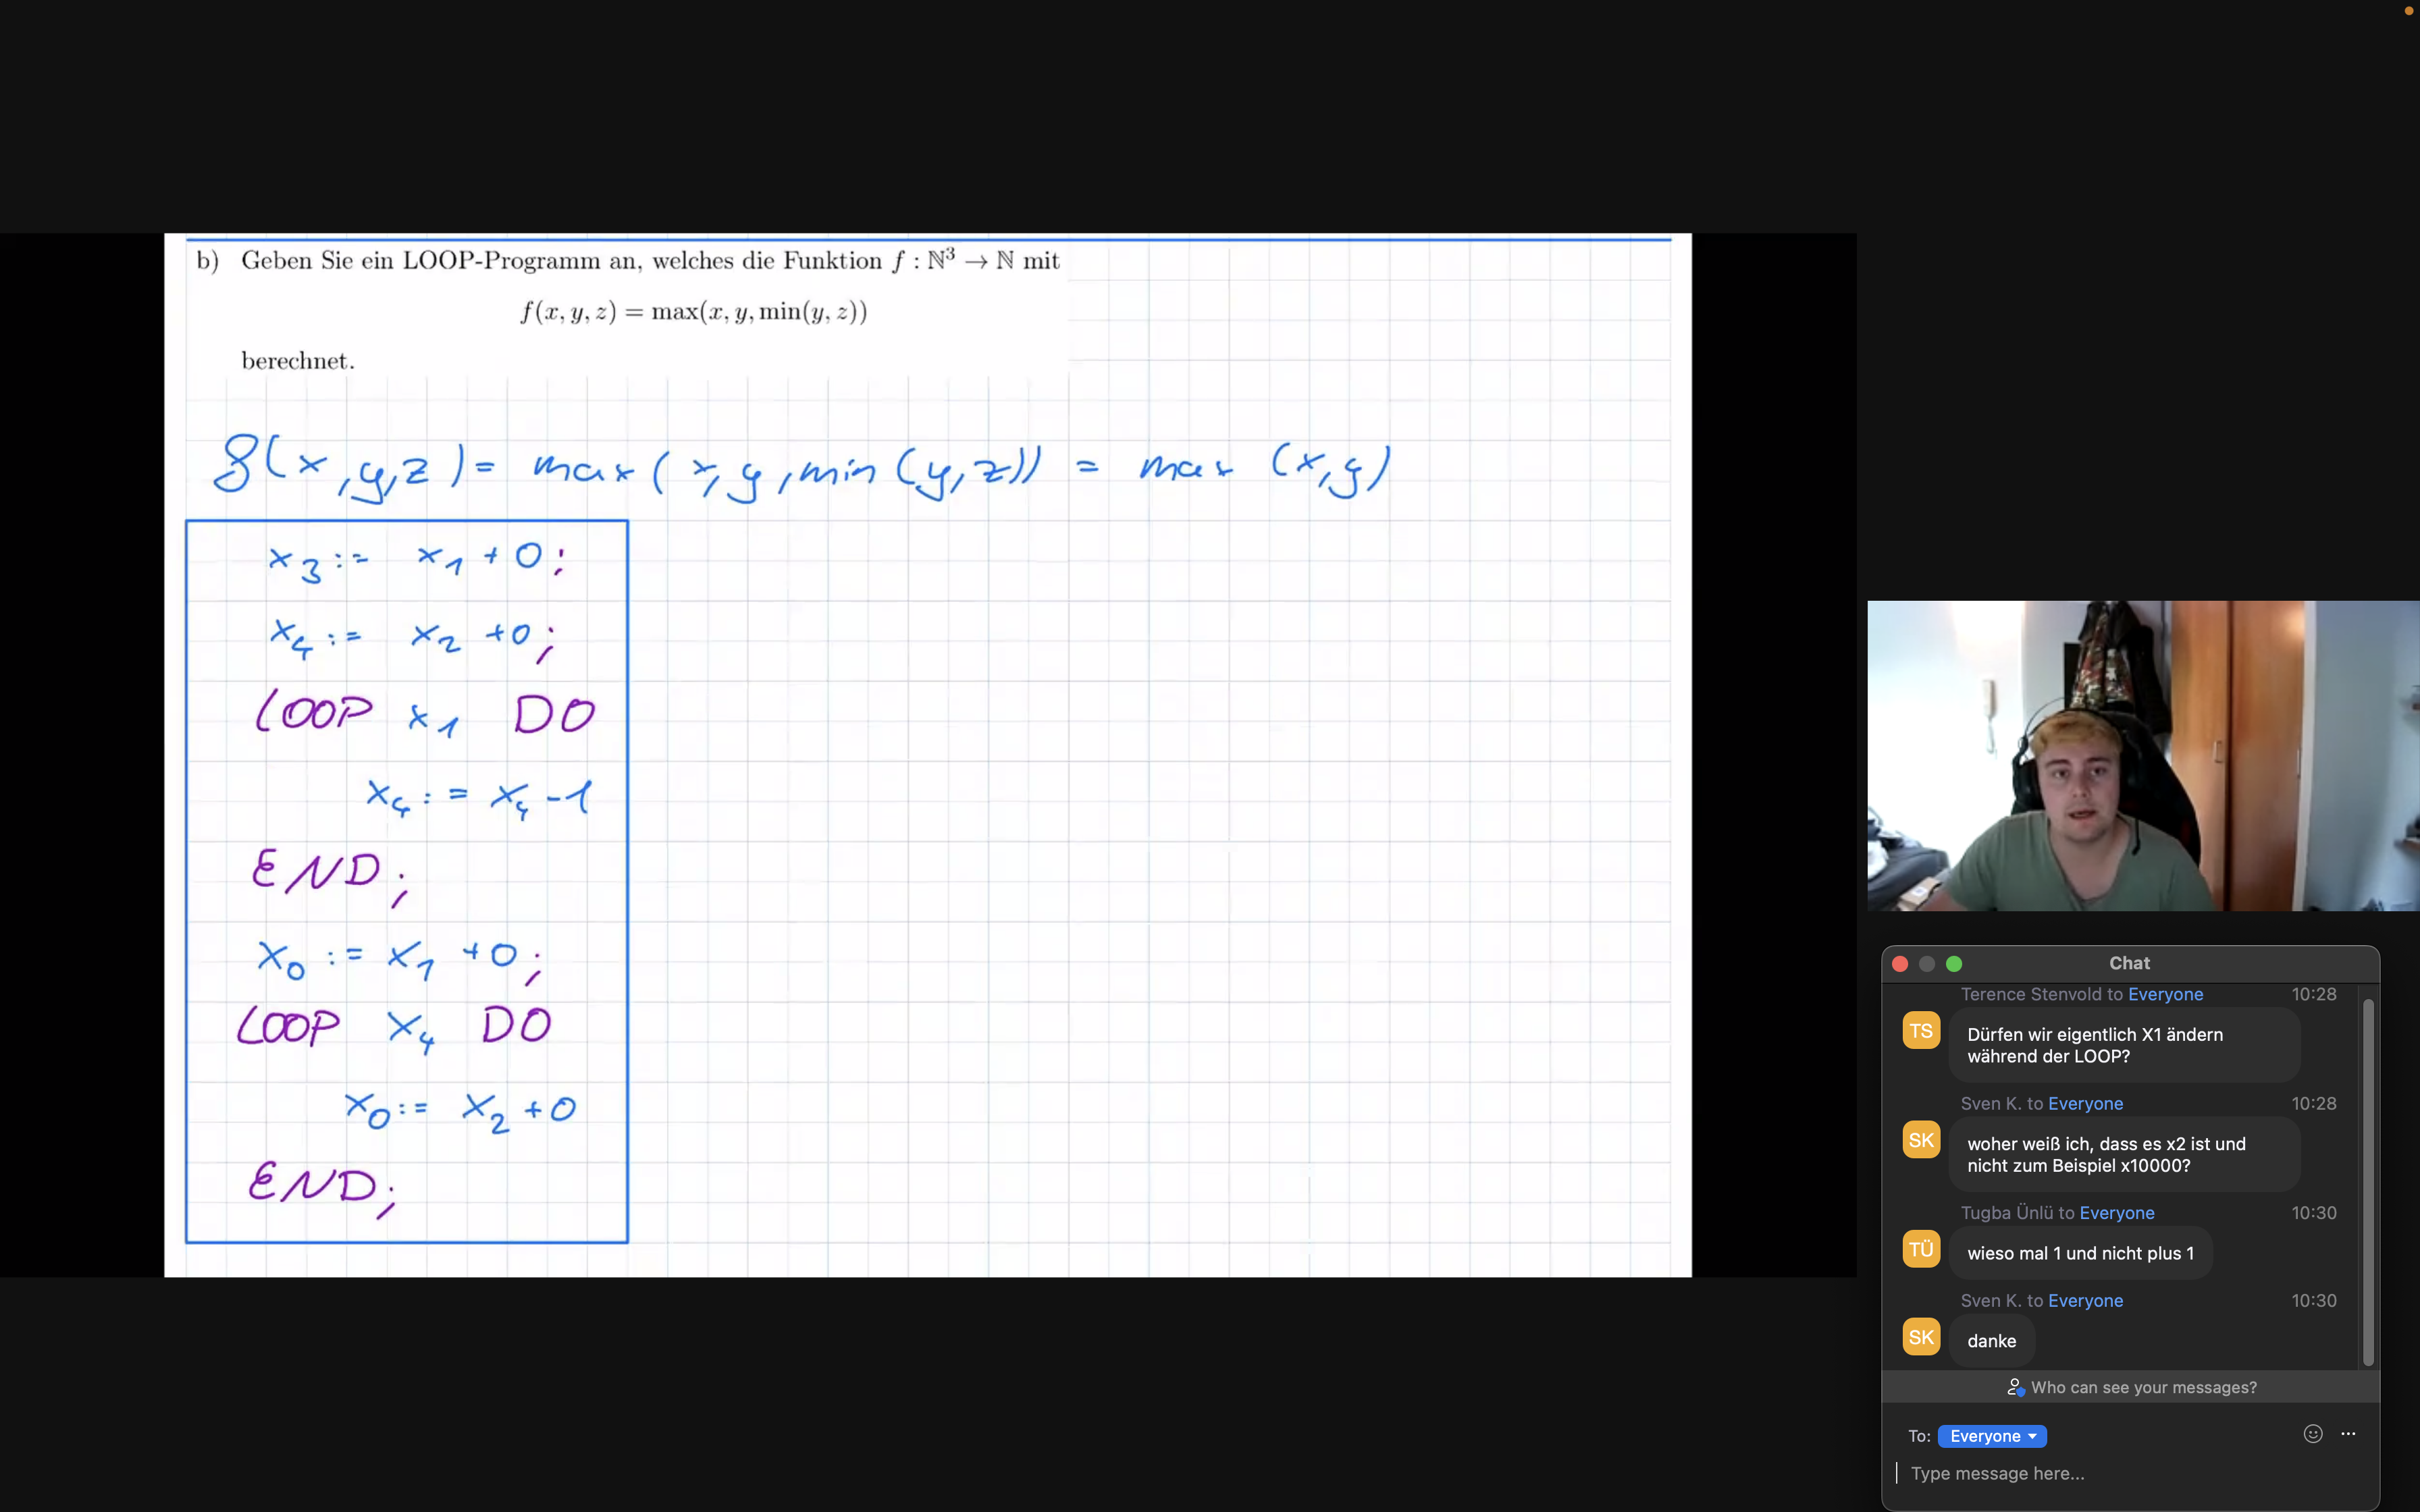 b) Geben Sie ein LOOP-Programm an, welches die Funktion f : ℕ³ → ℕ mit
f(x, y, z) = max(x, y, min(y, z))
berechnet.
f(x,y,z) = max(x,y,min(y,z)) = max(x,y)
x₃ := x₁ + 0;
x₄ := x₂ + 0;
LOOP x₁ DO
x₄ := x₄ - 1
END;
x₀ := x₁ + 0;
LOOP x₄ DO
x₀ := x₂ + 0
END;
Chat
Terence Stenvold to Everyone 10:28
TS
Dürfen wir eigentlich X1 ändern
während der LOOP?
Sven K. to Everyone 10:28
SK
woher weiß ich, dass es x2 ist und
nicht zum Beispiel x10000?
Tugba Ünlü to Everyone 10:30
TÜ
wieso mal 1 und nicht plus 1
Sven K. to Everyone 10:30
SK
danke
Who can see your messages?
To: Everyone
Type message here...